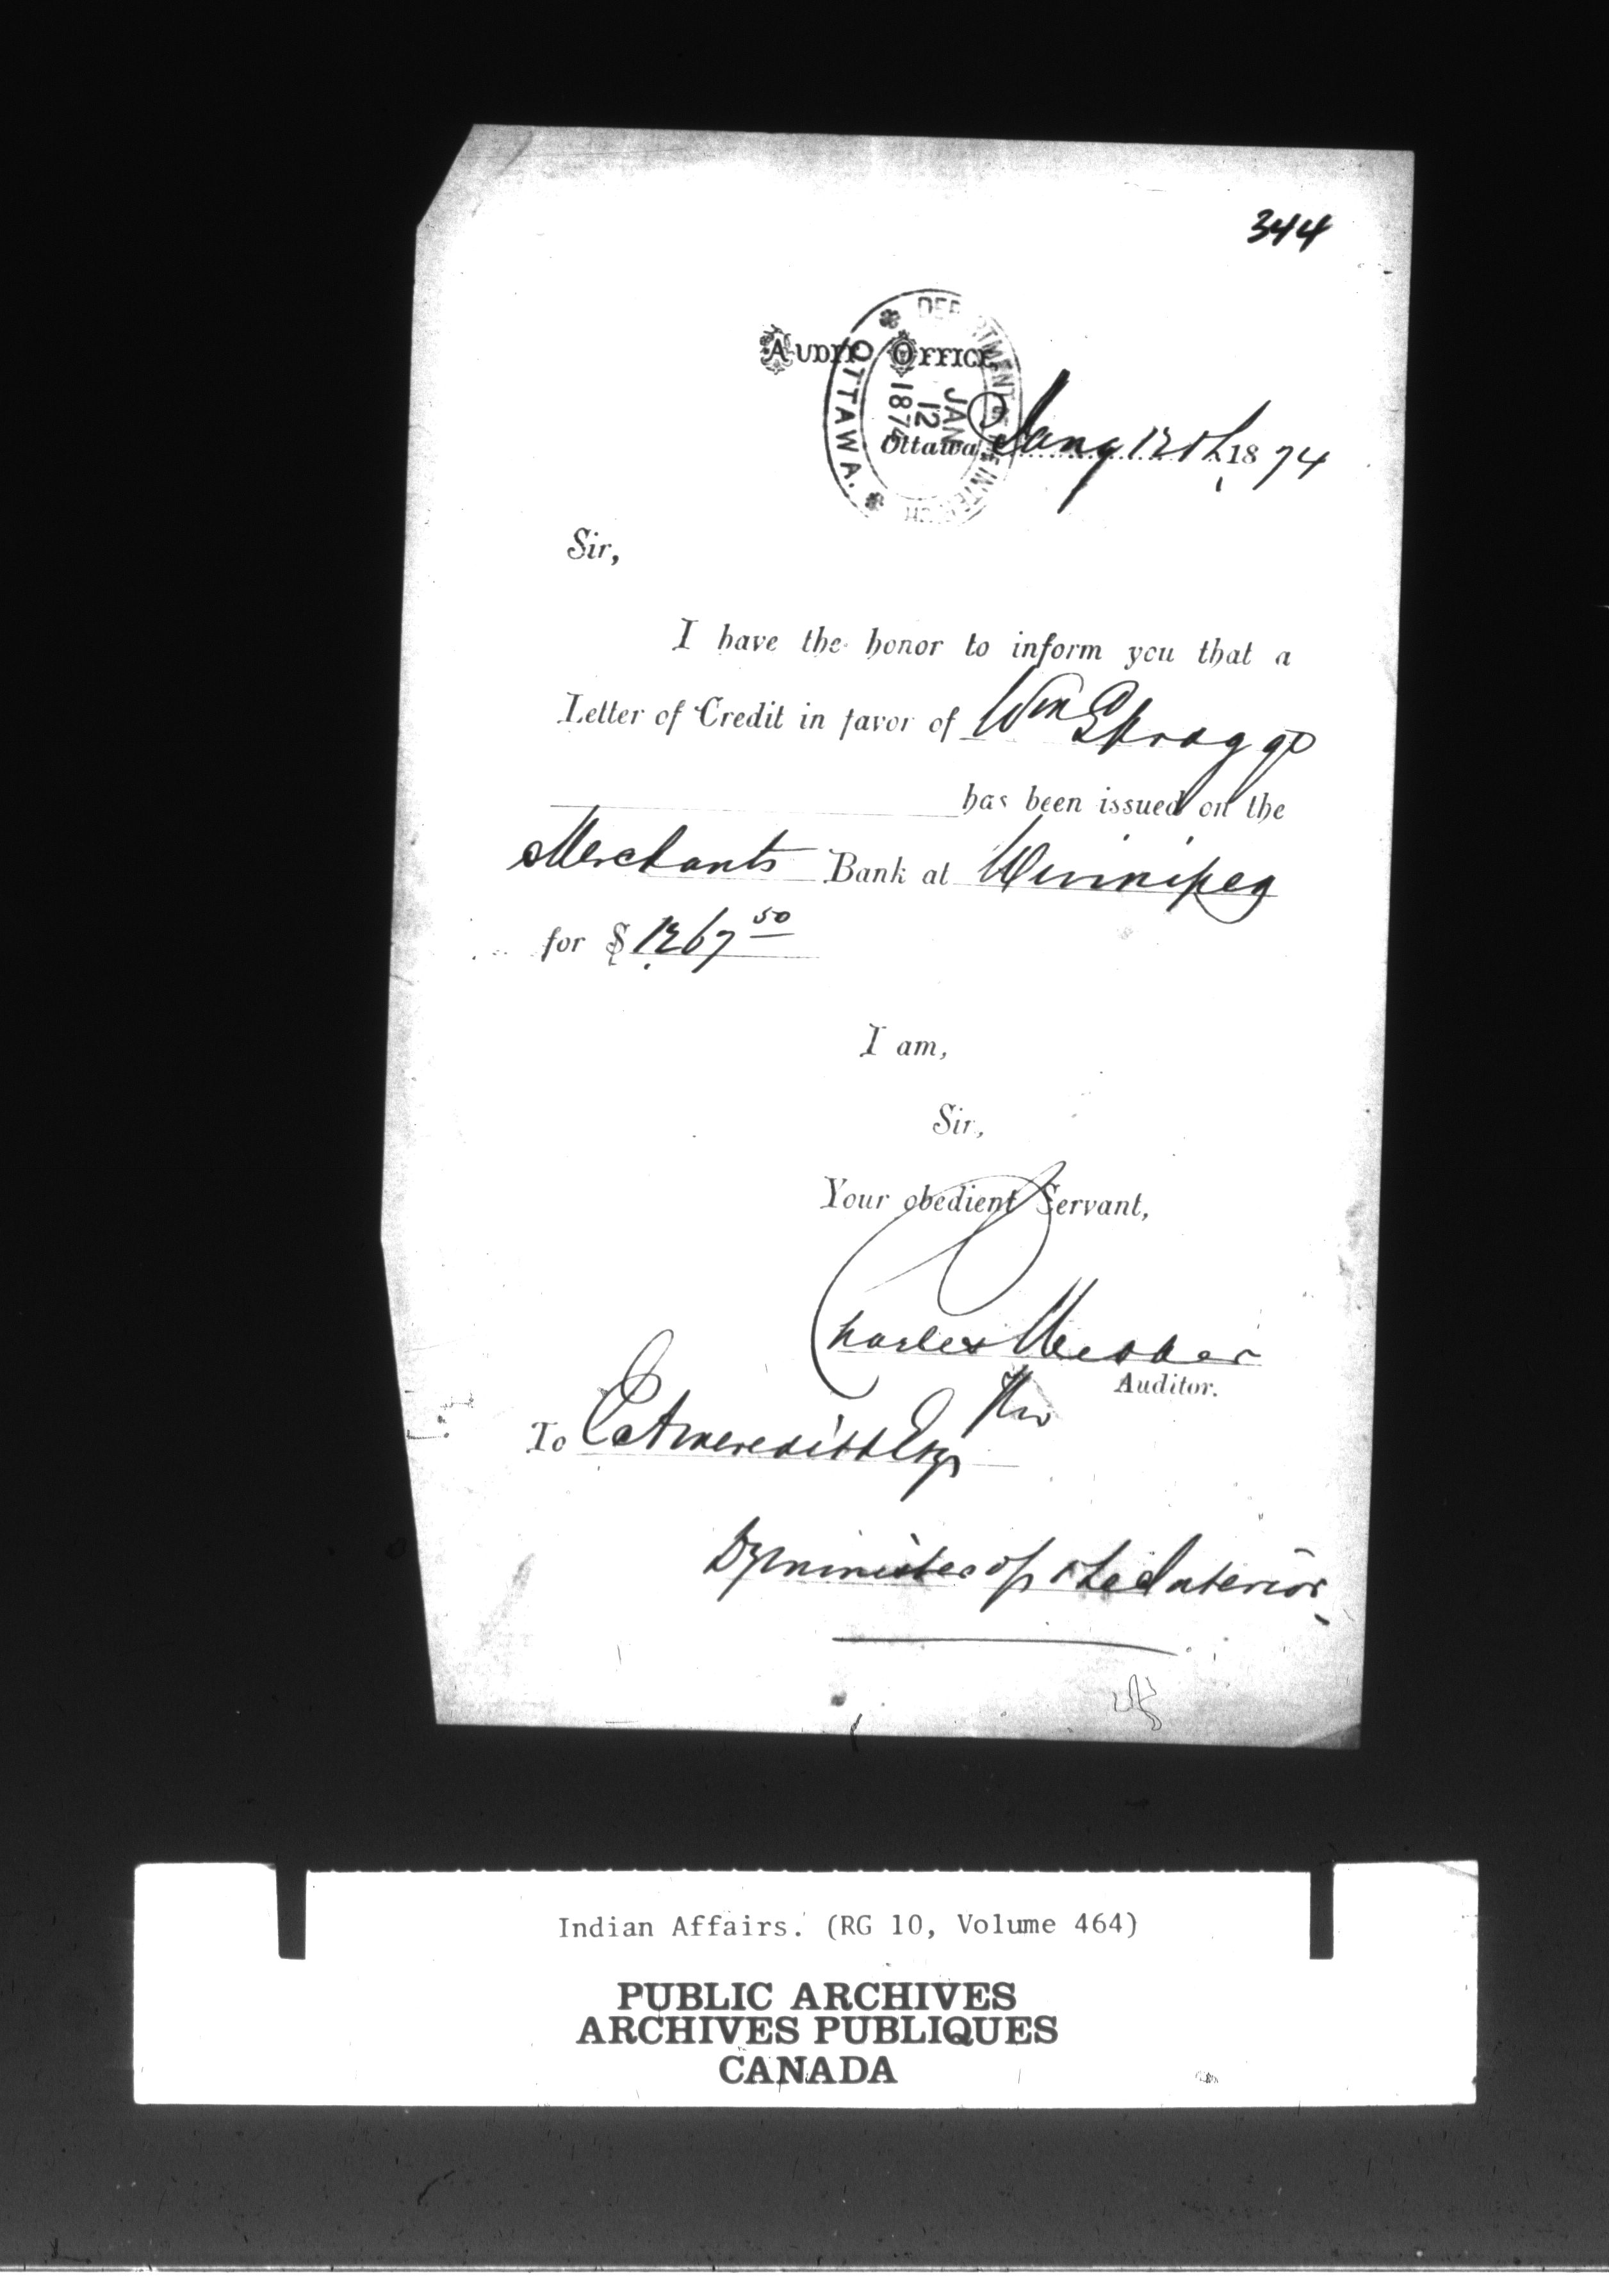 344
AUDIT OFFICE,
DEPARTMENT OF THE INTERIOR
OTTAWA.
JAN
12
1874
Ottawa, Jany 12th 1874
Sir,
I have the honor to inform you that a
Letter of Credit in favor of Wm Spragge
has been issued on the
Merchants Bank at Winnipeg
for $ 1267 50
I am,
Sir,
Your obedient Servant,
Charles
Auditor.
To E A Meredith Esqr
Dy Minister of the Interior
Indian Affairs. (RG 10, Volume 464)
PUBLIC ARCHIVES
ARCHIVES PUBLIQUES
CANADA